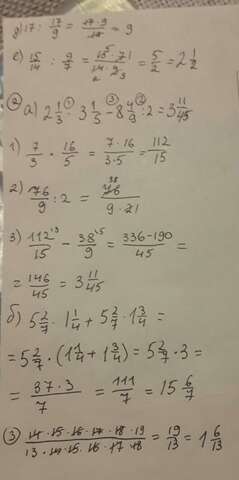 д) 17 : 17/9 = 17·9/17 = 9
е) 15/14 : 9/7 = 15⁵·7¹/14₂·9₃ = 5/2 = 2 1/2
② а) 2 1/3 ·① 3 1/5 −③ 8 4/9 :② 2 = 3 11/45
1) 7/3 · 16/5 = 7·16/3·5 = 112/15
2) 76/9 : 2 = 76³⁸/9·21
3) 112/15 ^3 − 38/9 ^5 = 336−190/45 =
= 146/45 = 3 11/45
б) 5 2/7 · 1 1/4 + 5 2/7 · 1 3/4 =
= 5 2/7 · (1 1/4 + 1 3/4) = 5 2/7 · 3 =
= 37·3/7 = 111/7 = 15 6/7
③ 14·15·16·17·18·19/13·14·15·16·17·18 = 19/13 = 1 6/13